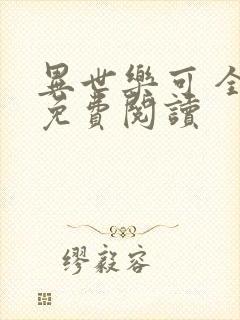 異世樂可 全
免費閱讀
繆毅容